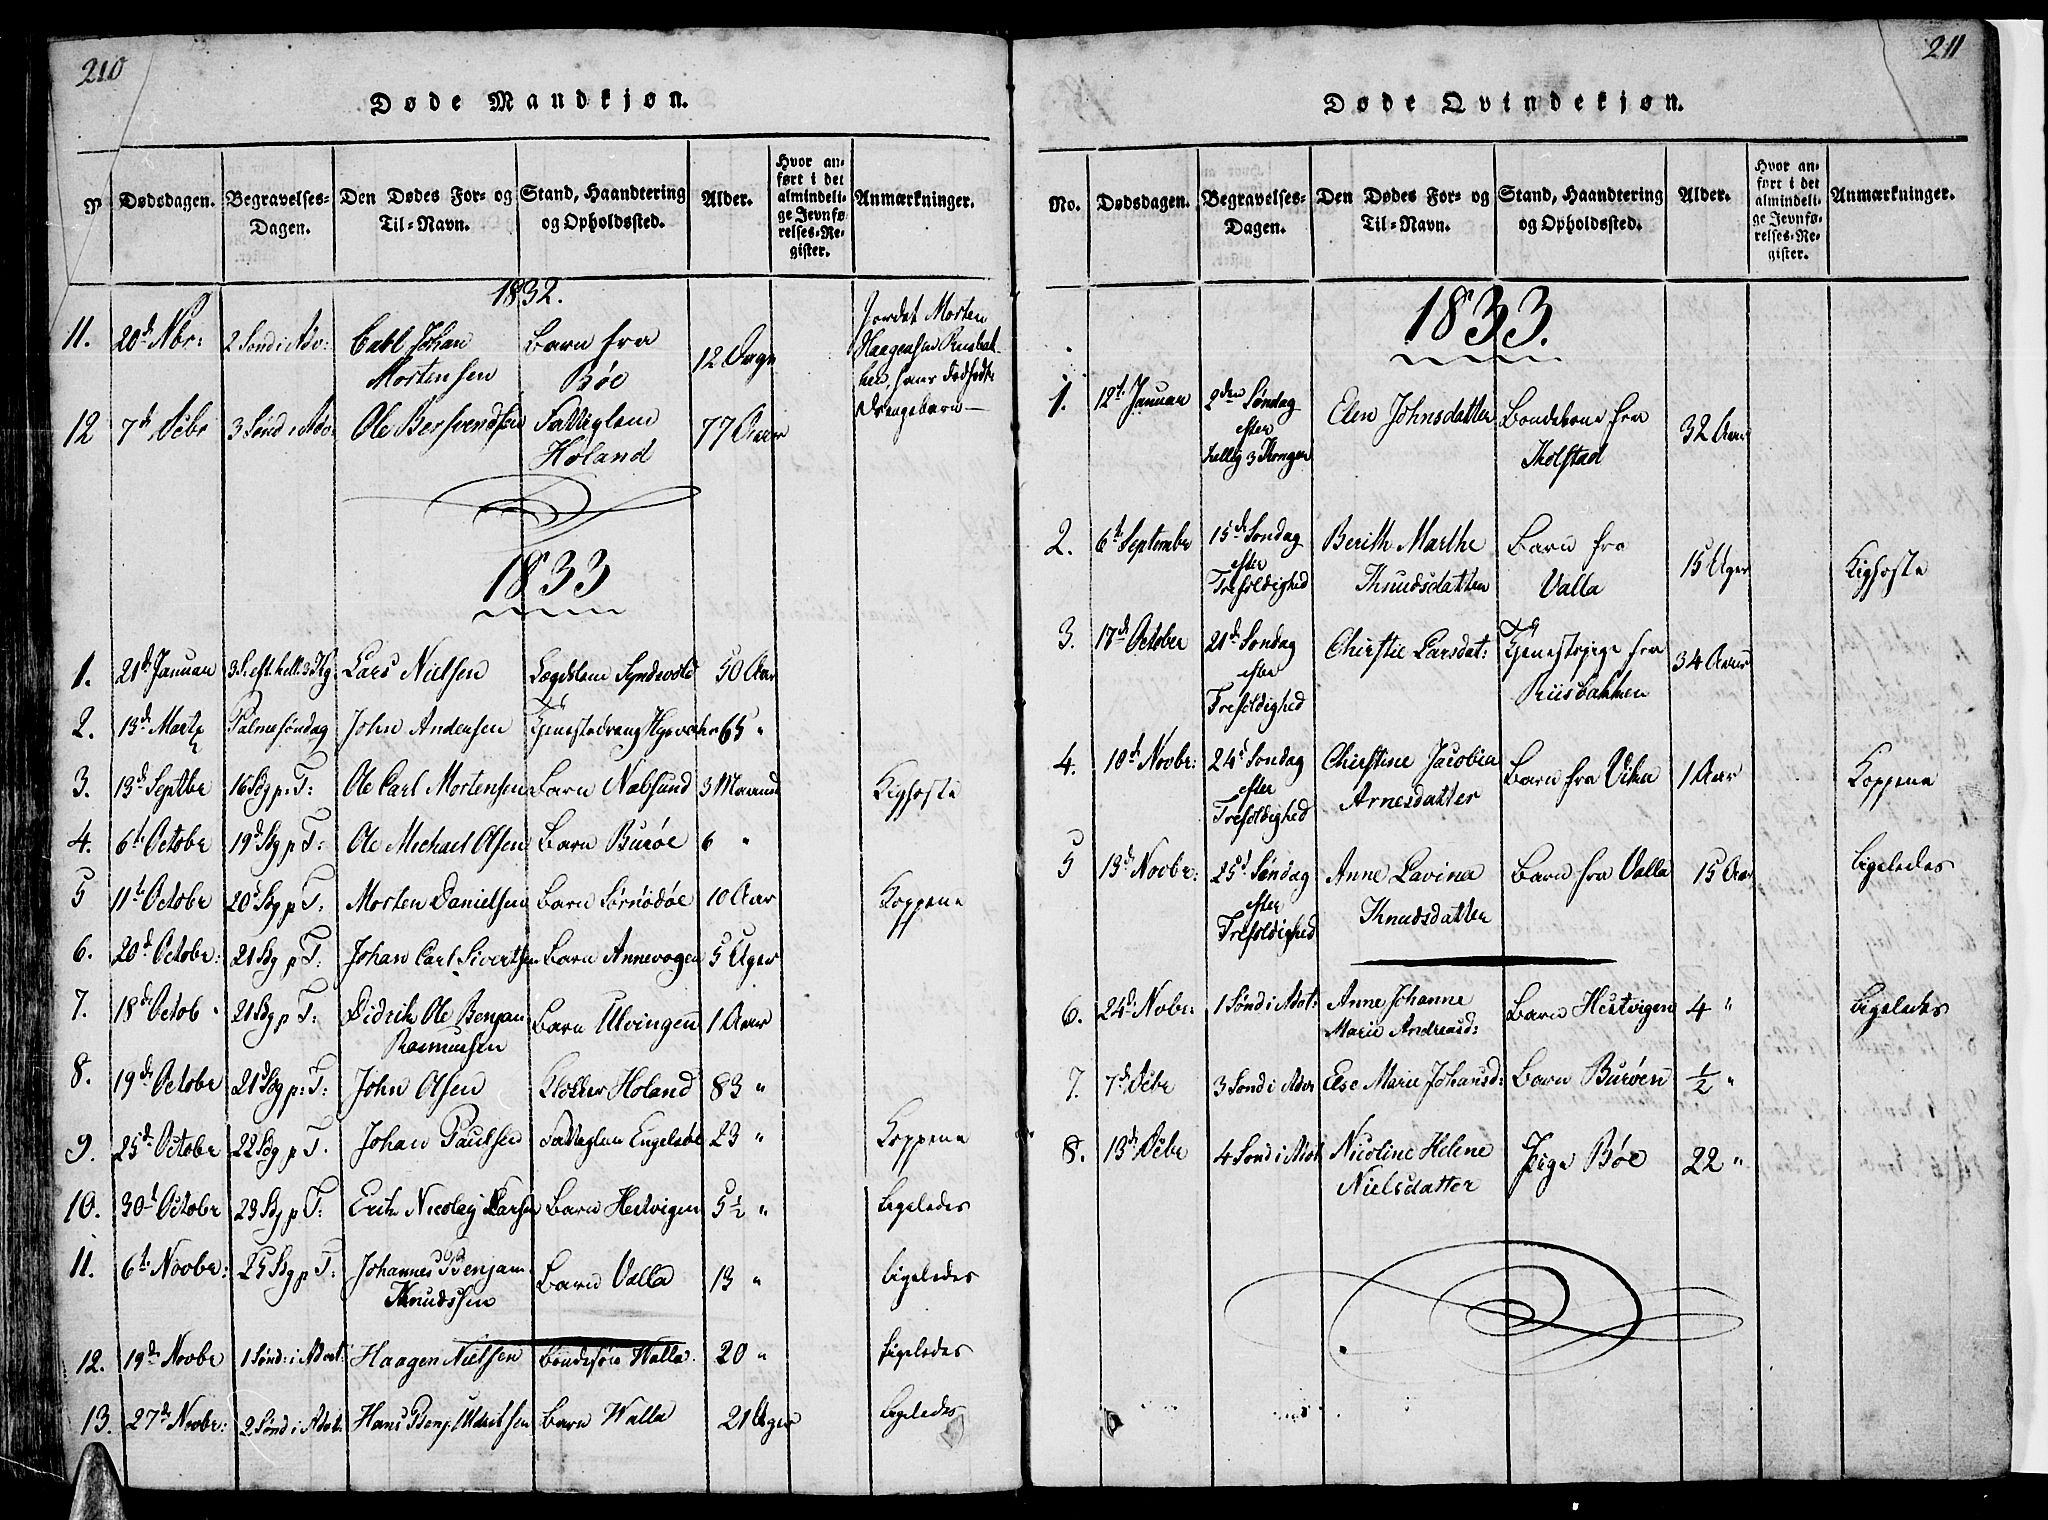 210
Døde Mandkjøn.
No Dødsdagen. Begravelses-Dagen. Den Dødes For- og Til-Navn. Stand, Haandtering og Opholdssted. Alder. Hvor anført i det almindelige Jevnførelses-Register. Anmærkninger.
1832.
11. 20de Nbr: 2 Sönd i Adv: Carl Johan Mortensen Barn fra Böe 12 Dage Jordet Morten Haagensen hans dødfødte Drengebarn
12 7de Debr 3 Sönd i Adv: Ole Bersvendsen Fattiglem Höland 77 Aar
1833
1. 21de Januar 3 S. eft. hell. 3 Kg: Lars Nielsen Lægdslem 50 Aar
2. 13de Martz Palmesöndag John Andersen Tjenestedreng 65 "
3. 13de Septbr 16 Sdg p: T: Ole Carl Mortensen Barn Næbsund 3 Maaned Kighoste
4. 6te Octobr 19de Sdg p T: Ole Michael Olsen Barn Buröe 6 "
5 11te Octobr 20de Sdg p T: Morten Danielsen Barn 10 Aar Koppene
6. 20de Octobr: 21 Sdg p T: Johan Carl Sivertsen Barn Annevogen 5 Uger
7. 18de Octob 21 Sdg p T: Didrik Ole Benjam Rasmussen Barn Ulvingen 1 Aar
8. 19de Octobr 21 Sdg p: T: John Olsen Klokker Holand 83 "
9. 25de Octobr 22 Sdg p T. Johan Paulsen Fattiglem Engelsöe 23 " Koppene
10. 30te Octobr 23 Sdg p T: Erik Nicolay Larsen Barn Hestvigen 5 1/2 " Ligeledes
11. 6te Novbr: 25 Sdg p T: Johannes Benjam Knudssen Barn Valla 13 " ligeledes
12. 19de Novbr 1 Sönd: i Advt: Haagen Nielsen Bondesön Walla. 20 " ligeledes
13. 27de Novbr: 2 Sönd i Advt. Hans Benj. Uldriksen Barn Walla 21 Uger ligeledes
211
Døde Qvindekjøn.
No. Dødsdagen. Begravelses-Dagen. Den Dødes For- og Til-Navn. Stand, Haandtering og Opholdssted. Alder. Hvor anført i det almindelige Jevnførelses-Register. Anmærkninger.
1833.
1. 12te Januar 2den Söndag efter hellig 3 Konger Elen Johnsdatter Bondekone fra Tholstad 32 Aar
2. 6te Septembr 15de Söndag efter Trefoldighed Berith Marthe Knudsdatter Barn fra Valla 15 Uger Kighoste
3. 17de October 21de Söndag efter Trefoldighed Chirstie Larsdat: Tjenestepige fra Riisbakken 34 Aar
4. 10de Novbr: 24de Söndag efter Trefoldighed Chirstine Jacobia Arnesdatter Barn fra Vika 1 Aar Koppene
5 13de Novbr: 25de Söndag efter Trefoldighed Anne Lavina Knudsdatter Barn fra Valla 15 Aar Ligeledes
6. 24de Novbr: 1 Sönd i Advt: Anne Johanne Marie Andreasd: Barn Hestvigen 4 " Ligeledes
7. 7de Debr 3 Sönd i Advt Else Marie Johansd: Barn Buröen 1/2 "
8. 13de Debr 4 Sönd i Advt Nicoline Helene Nielsdatter Pige Böe 22 "